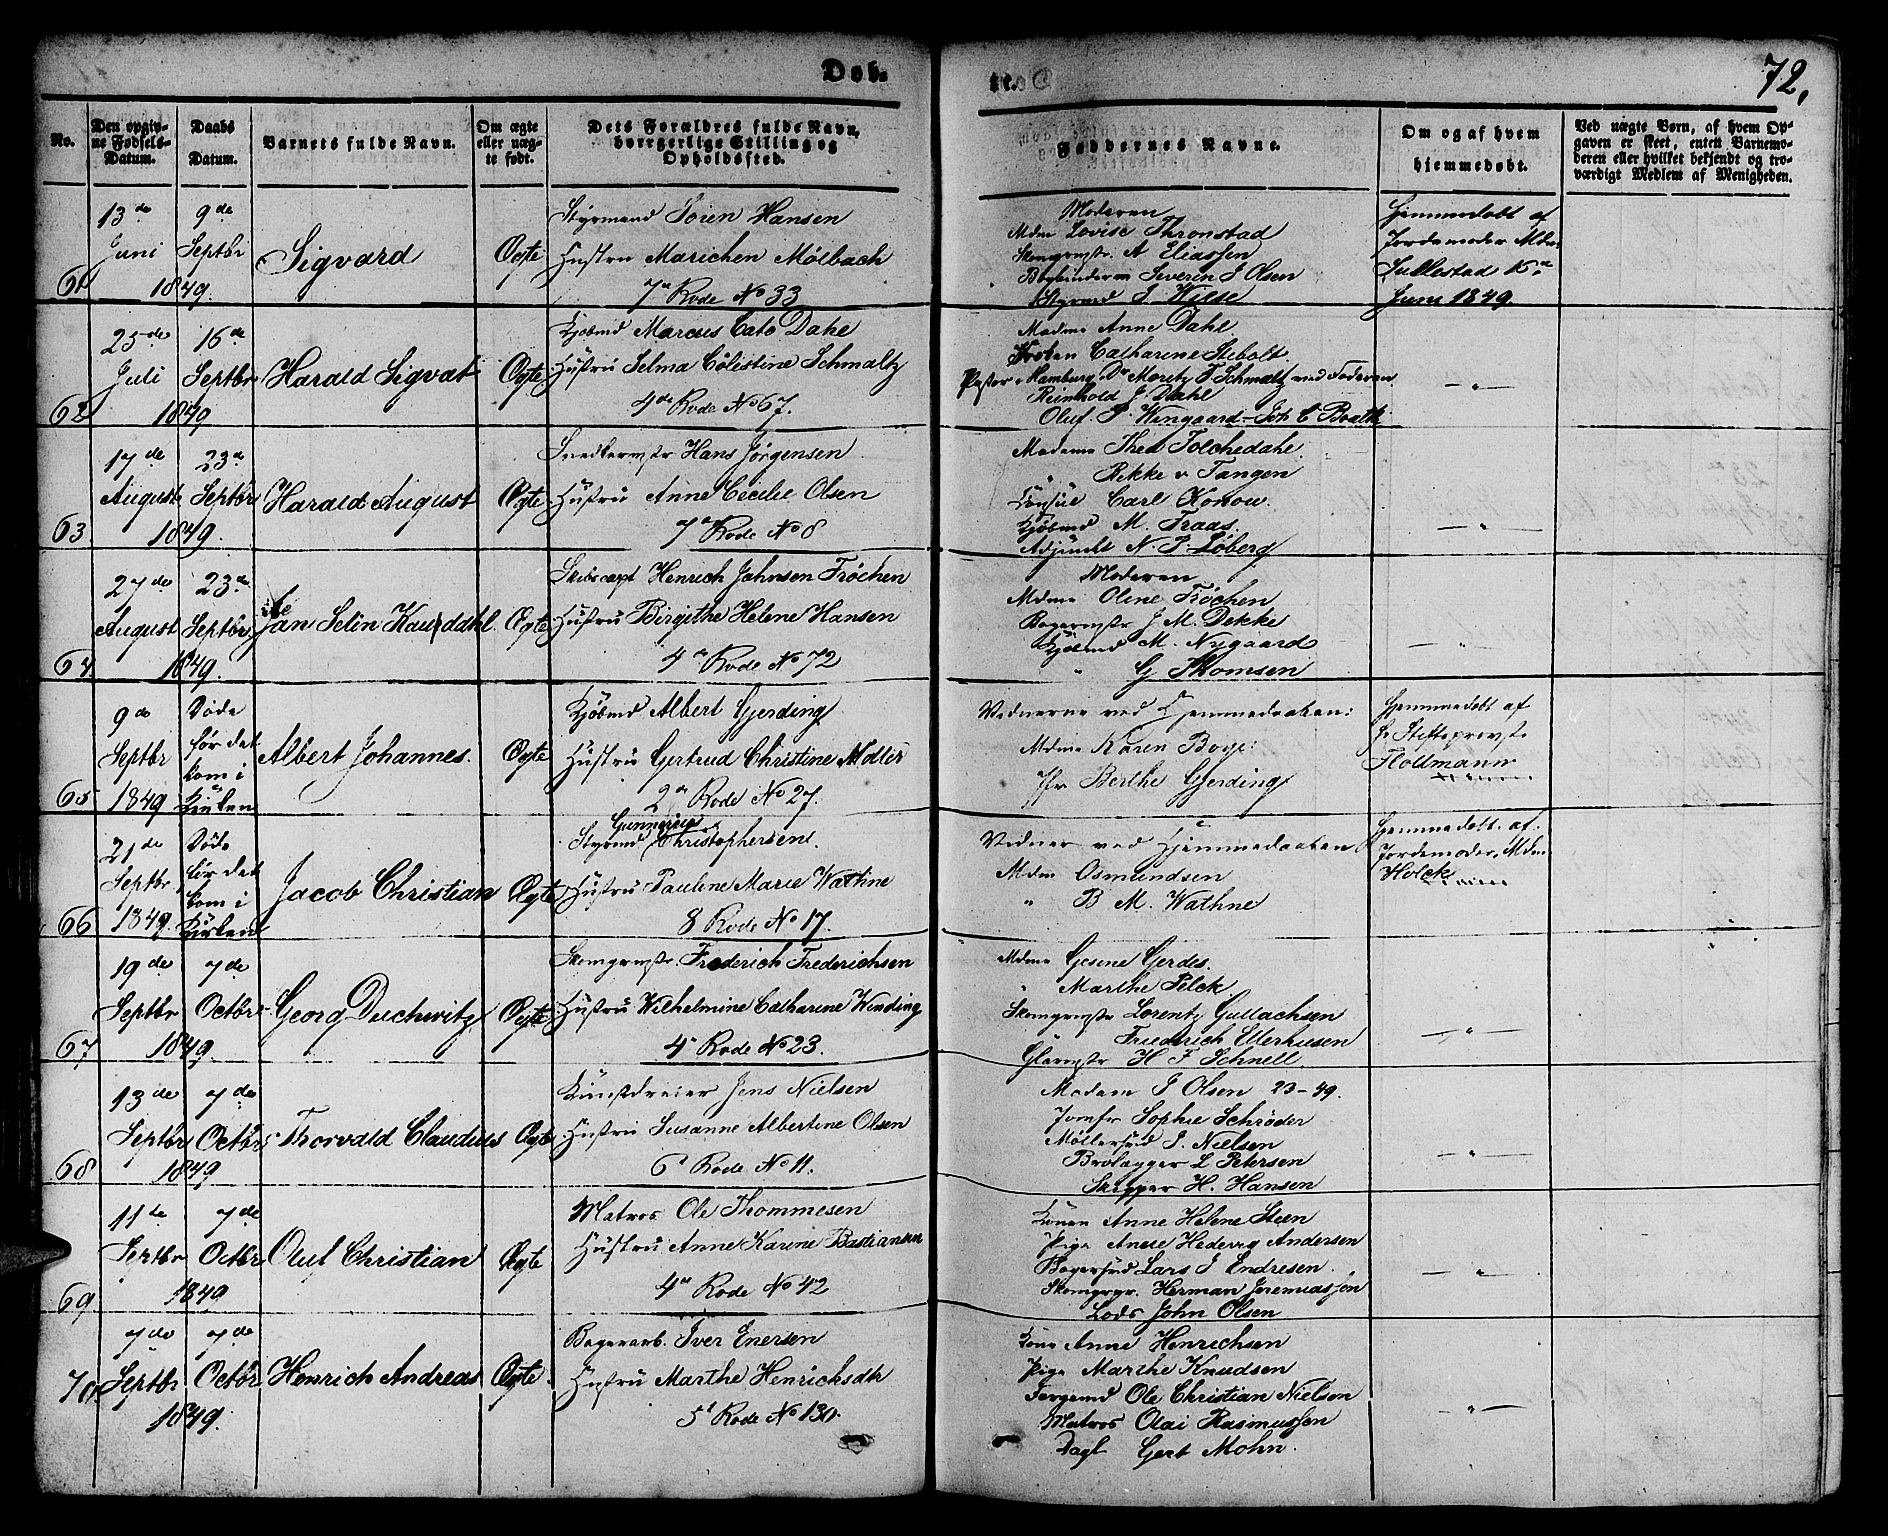 Døb-
te.
72,
No.
Den opgiv-
ne Fødsels-
Datum.
Daabs
Datum.
Barnets fulde Navn.
Om ægte
eller uæg-
te født.
Dets Forældres fulde Navn,
borgerlige Stilling og
Opholdsted.
Faddernes Navne.
Om og af hvem
hjemmedøbt.
Ved uægte Børn, af hvem Op-
gaven er skeet, enten Barnemo-
deren eller hvilket bekjendt og tro-
værdigt Medlem af Menigheden.
61
13de
Juni
1849.
9de
Septbr
Sigvard
Ægte
Styrmand Sören Hansen
Hustru Marichen Mölbach
7de Rode No 33
Moderen
Mdm Lovise Thronstad
Skomgrmstr. A Eliassen
Bogbinderen Severin J Olsen
Styrmd J. Wiese
Hjemmedöbt af
Jordemoder Mdm
Sullestad 15de
Juni 1849.
62
25de
Juli
1849
16de
Septbr
Harald Sigvat
Ægte
Kjøbmd Marcus Cato Dahl
Hustru Selma Cölestine Schmaltz
4de Rode No 67.
Madme Anne Dahl
Frøken Catharine Stibolt.
Pastor i Hamburg Dr Moritz F Schmaltz ved Faderen
Reinhold J Dahl
Oluf P. Wingaard - Joh C Boalth
— " —
63
17de
August
1849.
23de
Septbr
Harald August
Ægte
Snedkermstr Hans Jörgensen
Hustru Anne Cecilie Olsen
7de Rode No 8
Madame Thea Tolchedahl
" Rikke v Tangen
Consul Carl Konow.
Kjøbmd M. Traas.
Adjunkt N. P. Löberg
— " —
64
27de
August
1849.
23de
Septbr
Jan Selin Kaurddahl.
Ægte
Skibscapt Henrich Johnsen Fröchen
Hustru Birgithe Helene Hansen
4de Rode No 72
Moderen
Mdme Oline Fröchen
Bagermstr J. M. Dekke
Kjøbmd M. Nygaard
" G Thomsen
— " —
65
9de
Septbr
1849
Døde
før det
kom i
Kirken
Albert Johannes.
Ægte
Kjøbmd Albert Gjerding
Hustru Gertrud Christine Möller
2de Rode No 27.
Vidnerne ved Hjemmedaaben:
Mdme Karen Boye:
Jfr Berthe Gjerding
Hjemmedøbt af
Hr Stiftsprovst
Holtmann
66
21de
Septbr
1849.
Døde
før det
kom i
Kirken
Jacob Christian
Ægte
Gunnerius
Styrmd Christophersen.
Hustru Pauline Marie Wathne
8 Rode No 17.
Vidner ved Hjemmedaaben
Mdm Osmundsen
" B M. Wathne
Hjemmedøbt af
Jordemoder Mdm
Holck
67
19de
Septbr
1849.
7de
Octbr
Georg Duchwitz
Ægte
Skomgrmstr. Frederich Frederichsen
Hustru Wilhelmine Catharine Winding
4de Rode No 23.
Mdme Gesine Gerdes.
" Marthe Pilck
Skomgrmstr Lorentz Gullachsen
Friedrich Ellerhusen
Glarmstr H F Schnell.
— " —
68
13de
Septbr
1849
7de
Octbr
Thorvald Claudius
Ægte
Kunstdreier Jens Nielsen
Hustru Susanne Albertine Olsen
6te Rode No 11.
Madam J Olsen 23-49.
Jomfr Sophie Schröder
Møllersvd J. Nielsen
Brolægger L Petersen
Skipper H. Hansen
— " —
69
11te
Septbr
1849
7de
Octbr
Oluf Christian
Ægte
Matros Ole Thommesen
Hustru Anne Karine Bastiansen
4de Rode No 42
Konen Anne Helene Steen
Pige Anne Hedevig Andersen
Bagersvd Lars J Endresen.
Skomgr. Herman Jeremiassen
Lods John Olsen
— " —
70
7de
Septbr
1849.
7de
Octbr
Henrich Andreas
Ægte
Bagerarb. Iver Enersen
Hustru Marthe Henrichsdtr
5te Rode No 130.
Kone Anne Henrichsen
Pige Marthe Knudsen
Ole Christian Nielsen
Matros Olai Rasmussen
Dagl Gert Mohn.
— " —